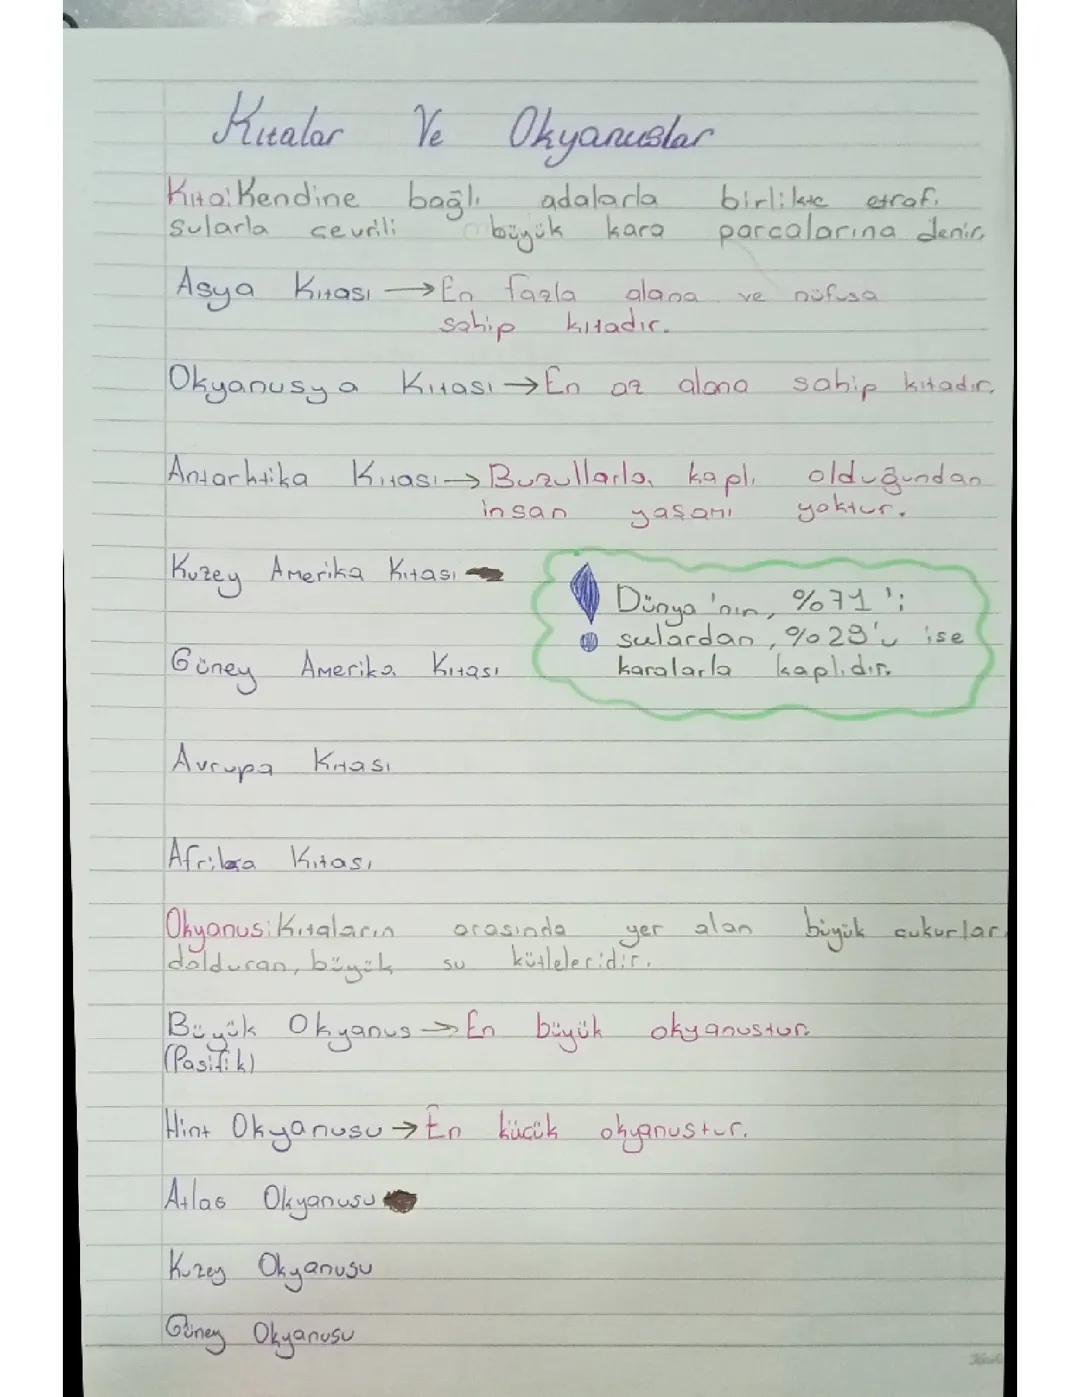 Kıtalar Ve Okyanuslar
Kıta: Kendine bağlı adalarla birlikte etrafı
sularla çevrili büyük kara parçalarına denir.
Asya Kıtası → En fazla alana ve nüfusa
sahip kıtadır.
Okyanusya Kıtası → En az alana sahip kıtadır.
Antarktika Kıtası → Buzullarla kaplı olduğundan
insan yaşamı yoktur.
Kuzey Amerika Kıtası
Dünya'nın, %71'i
sulardan, %29'u ise
karalarla kaplıdır.
Güney Amerika Kıtası
Avrupa Kıtası
Afrika Kıtası
Okyanus: Kıtaların arasında yer alan büyük çukurları
dolduran, büyük su kütleleridir.
Büyük Okyanus → En büyük okyanustur.
(Pasifik)
Hint Okyanusu → En küçük okyanustur.
Atlas Okyanusu
Kuzey Okyanusu
Güney Okyanusu